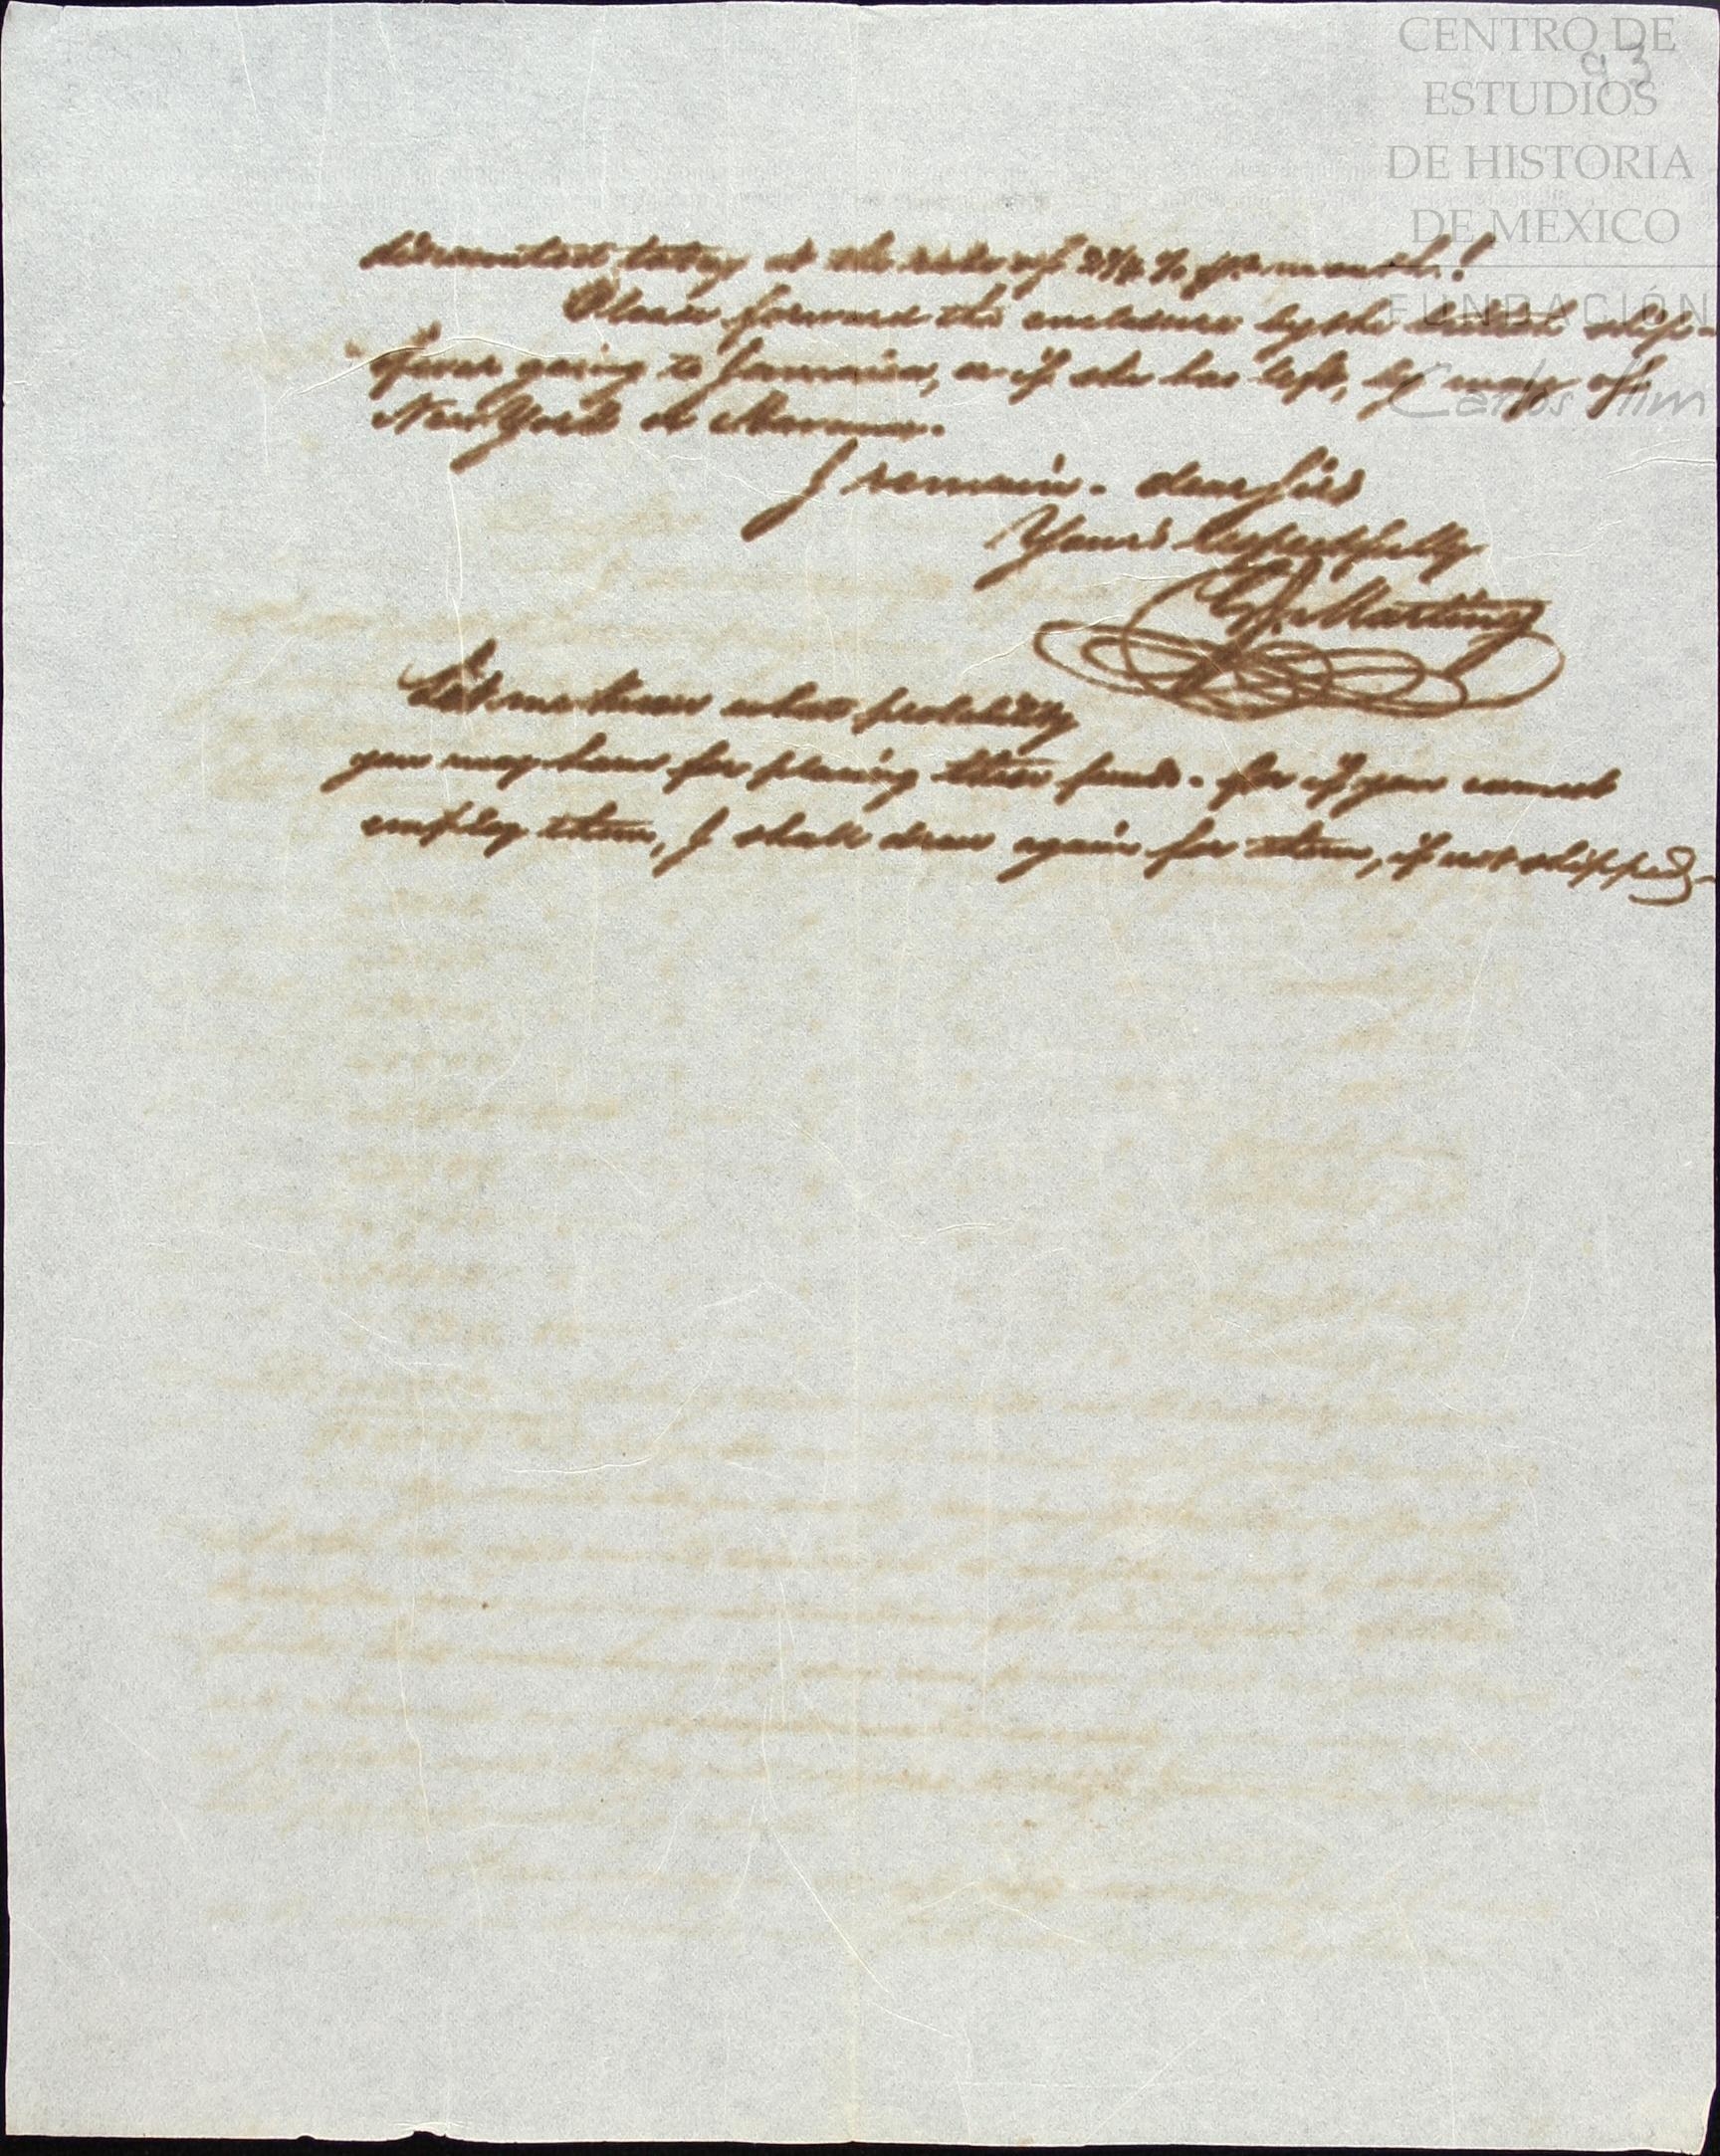 CENTRO DE
ESTUDIOS
DE HISTORIA
DE MEXICO
FUNDACIÓN
Carlos Slim
93
discounted today at the rate of 2 1/4 % pr month!
Please forward the enclosure by the British ship-
of war going to Jamaica, or if she has left, by way of
New York or Havana.
I remain. dear Sirs
Yours respectfully
Martinz
Let me know what probility
you may have for placing these funds. for if you cannot
employ them, I shall draw again for them, if not shipped-